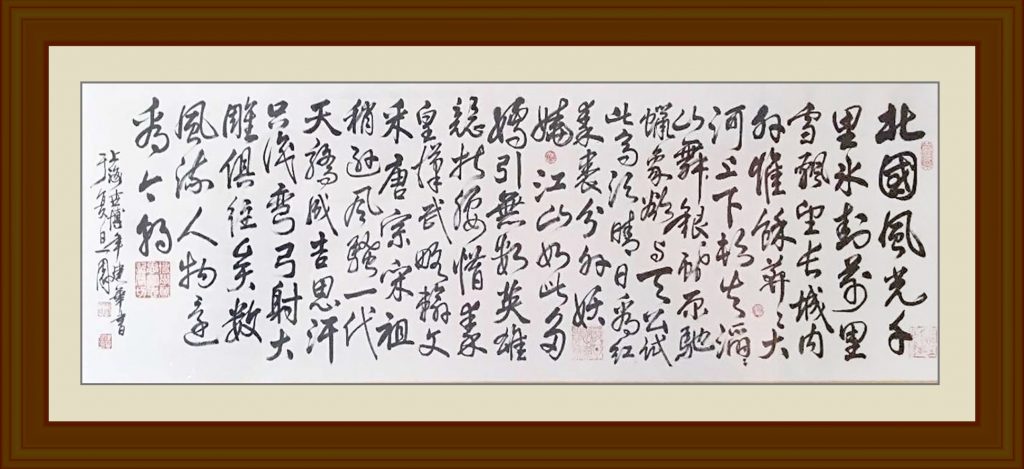 北國風光千
里冰封萬里
雪飄望长城内
外惟餘莽々大
河上下頓失滔々
山舞銀蛇原馳
蠟象欲与天公试
比高须晴日看红
素裹分外妖
嬈江山如此多
嬌引無数英雄
競折腰惜秦
皇漢武略輸文
采唐宗宋祖
稍逊風騷一代
天驕成吉思汗
只识弯弓射大
雕俱往矣数
風流人物还
看今朝
世博年建華書
复旦